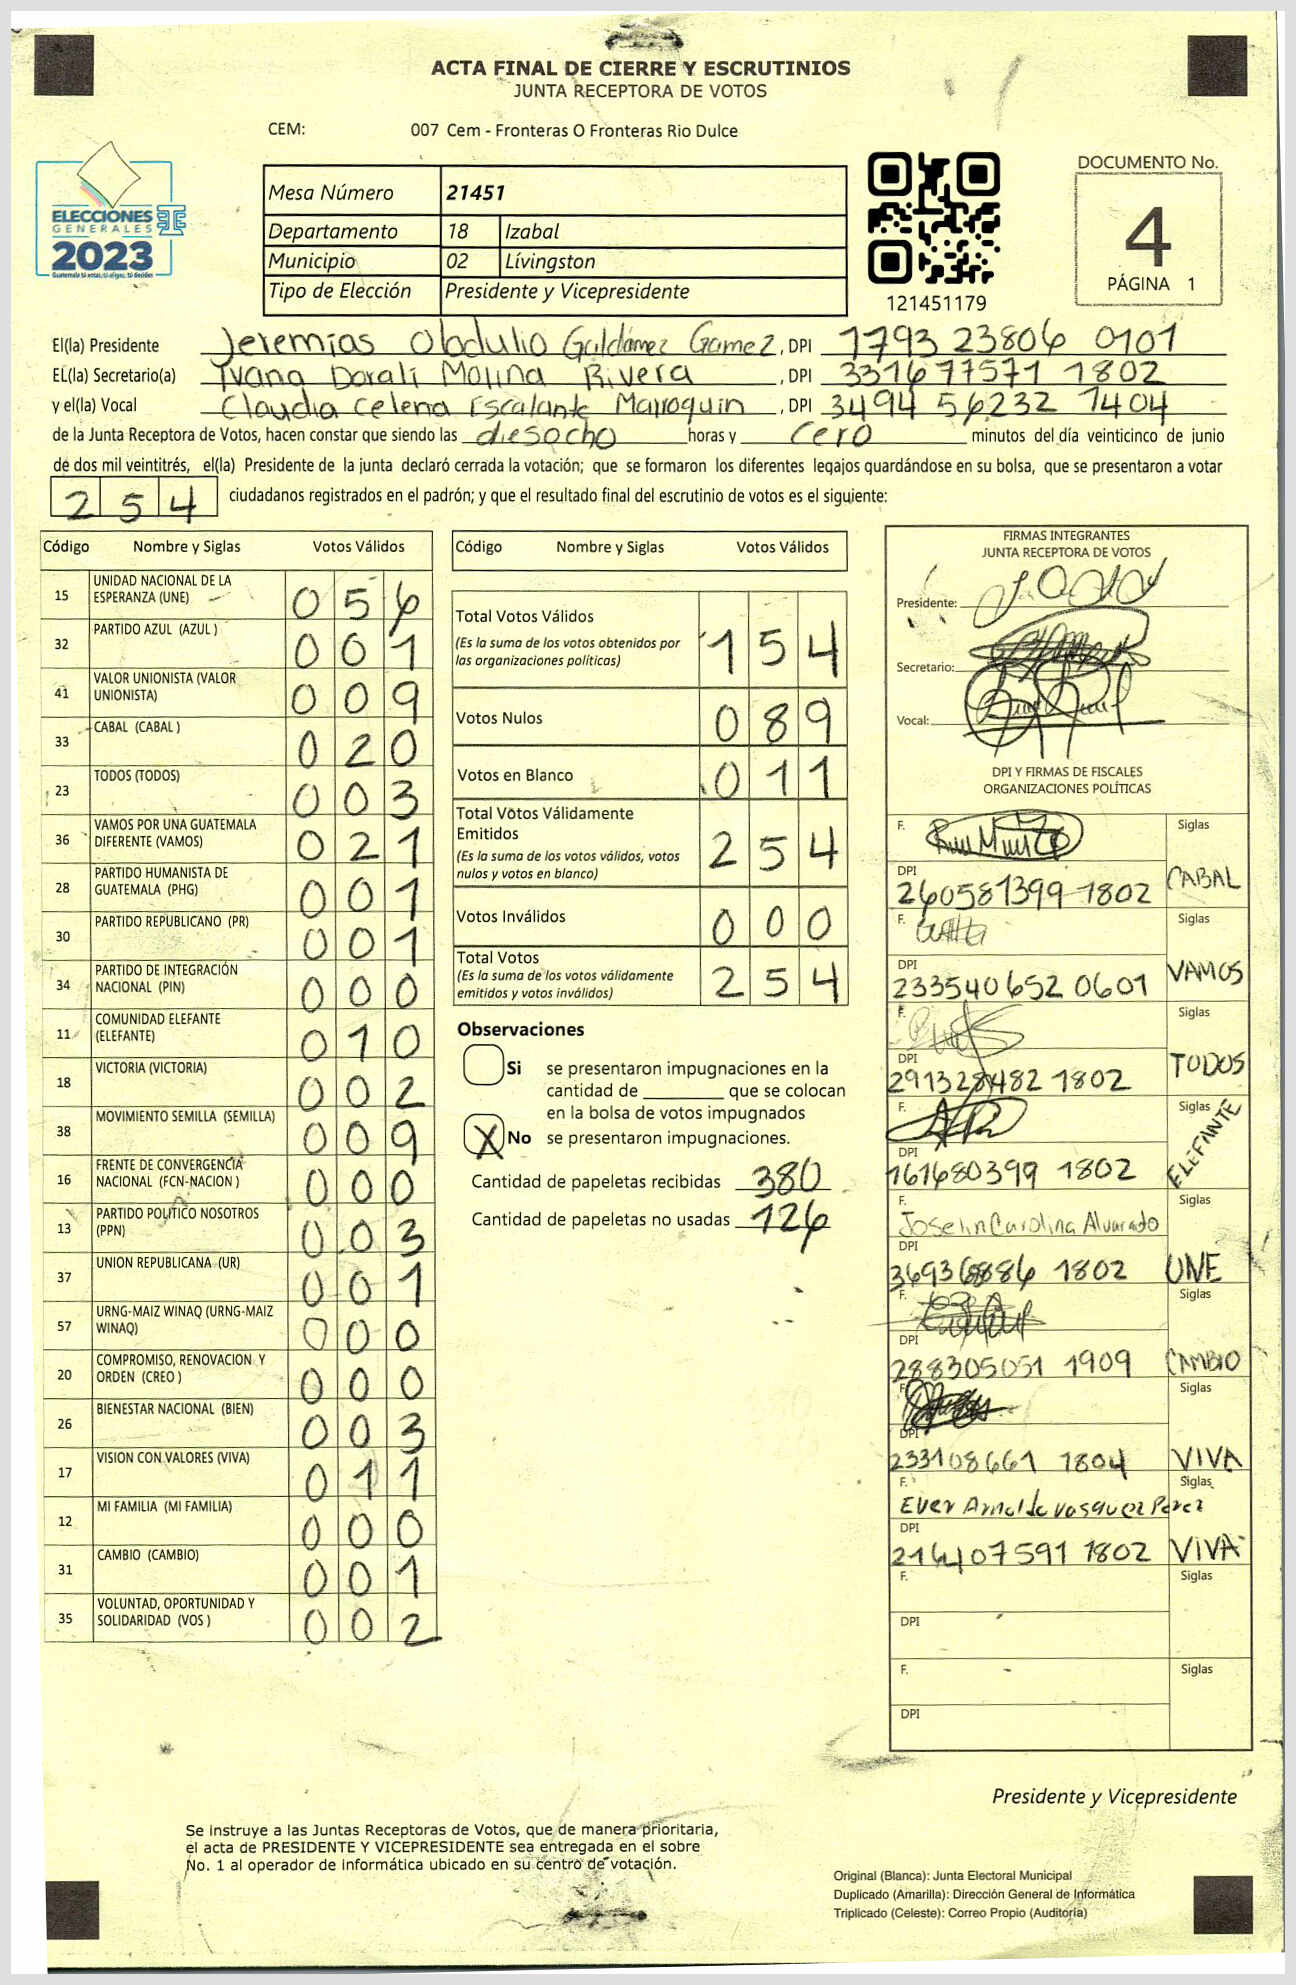 ACTA FINAL DE CIERRE Y ESCRUTINIOS
JUNTA RECEPTORA DE VOTOS
CEM: 007 Cem - Fronteras O Fronteras Rio Dulce
ELECCIONES
GENERALES
2023
Guatemala tú votas, tú eliges, tú decides
Mesa Número 21451
Departamento 18 Izabal
Municipio 02 Lívingston
Tipo de Elección Presidente y Vicepresidente
121451179
DOCUMENTO No.
4
PÁGINA 1
El(la) Presidente Jeremias Obdulio Galdámez Gamez, DPI 1793 23806 0101
EL(la) Secretario(a) Ivana Doralí Molina Rivera, DPI 331677571 1802
y el(la) Vocal Claudia Celena Escalante Marroquin, DPI 3494 56232 1404
de la Junta Receptora de Votos, hacen constar que siendo las diesocho horas y cero minutos del día veinticinco de junio
de dos mil veintitrés, el(la) Presidente de la junta declaró cerrada la votación; que se formaron los diferentes legajos guardándose en su bolsa, que se presentaron a votar
254 ciudadanos registrados en el padrón; y que el resultado final del escrutinio de votos es el siguiente:
Código Nombre y Siglas Votos Válidos
15 UNIDAD NACIONAL DE LA ESPERANZA (UNE) 056
32 PARTIDO AZUL (AZUL ) 001
41 VALOR UNIONISTA (VALOR UNIONISTA) 009
33 CABAL (CABAL ) 020
23 TODOS (TODOS) 003
36 VAMOS POR UNA GUATEMALA DIFERENTE (VAMOS) 021
28 PARTIDO HUMANISTA DE GUATEMALA (PHG) 001
30 PARTIDO REPUBLICANO (PR) 001
34 PARTIDO DE INTEGRACIÓN NACIONAL (PIN) 000
11 COMUNIDAD ELEFANTE (ELEFANTE) 010
18 VICTORIA (VICTORIA) 002
38 MOVIMIENTO SEMILLA (SEMILLA) 009
16 FRENTE DE CONVERGENCIA NACIONAL (FCN-NACION ) 000
13 PARTIDO POLITICO NOSOTROS (PPN) 003
37 UNION REPUBLICANA (UR) 001
57 URNG-MAIZ WINAQ (URNG-MAIZ WINAQ) 000
20 COMPROMISO, RENOVACION Y ORDEN (CREO ) 000
26 BIENESTAR NACIONAL (BIEN) 003
17 VISION CON VALORES (VIVA) 011
12 MI FAMILIA (MI FAMILIA) 000
31 CAMBIO (CAMBIO) 001
35 VOLUNTAD, OPORTUNIDAD Y SOLIDARIDAD (VOS ) 002
Código Nombre y Siglas Votos Válidos
Total Votos Válidos 154
(Es la suma de los votos obtenidos por
las organizaciones políticas)
Votos Nulos 089
Votos en Blanco 011
Total Votos Válidamente
Emitidos 254
(Es la suma de los votos válidos, votos
nulos y votos en blanco)
Votos Inválidos 000
Total Votos 254
(Es la suma de los votos válidamente
emitidos y votos inválidos)
Observaciones
Si se presentaron impugnaciones en la
cantidad de ________ que se colocan
en la bolsa de votos impugnados
X No se presentaron impugnaciones.
Cantidad de papeletas recibidas 380
Cantidad de papeletas no usadas 126
FIRMAS INTEGRANTES
JUNTA RECEPTORA DE VOTOS
Presidente:
Secretario:
Vocal:
DPI Y FIRMAS DE FISCALES
ORGANIZACIONES POLÍTICAS
F. Siglas
DPI
260581399 1802 CABAL
F. Siglas
DPI
233540652 0601 VAMOS
F. Siglas
DPI
291328482 1802 TODOS
F. Siglas
DPI
161680399 1802 ELEFANTE
F. Siglas
Joselin Carolina Alvarado
DPI
1802 UNE
F. Siglas
DPI
288305051 1909 CAMBIO
F. Siglas
DPI
233108661 1804 VIVA
F. Siglas
Ever Arnoldo Vasquez Perez
DPI
216407591 1802 VIVA
F. Siglas
DPI
F. Siglas
DPI
Presidente y Vicepresidente
Se instruye a las Juntas Receptoras de Votos, que de manera prioritaria,
el acta de PRESIDENTE Y VICEPRESIDENTE sea entregada en el sobre
No. 1 al operador de informática ubicado en su centro de votación.
Original (Blanca): Junta Electoral Municipal
Duplicado (Amarilla): Dirección General de Informática
Triplicado (Celeste): Correo Propio (Auditoría)